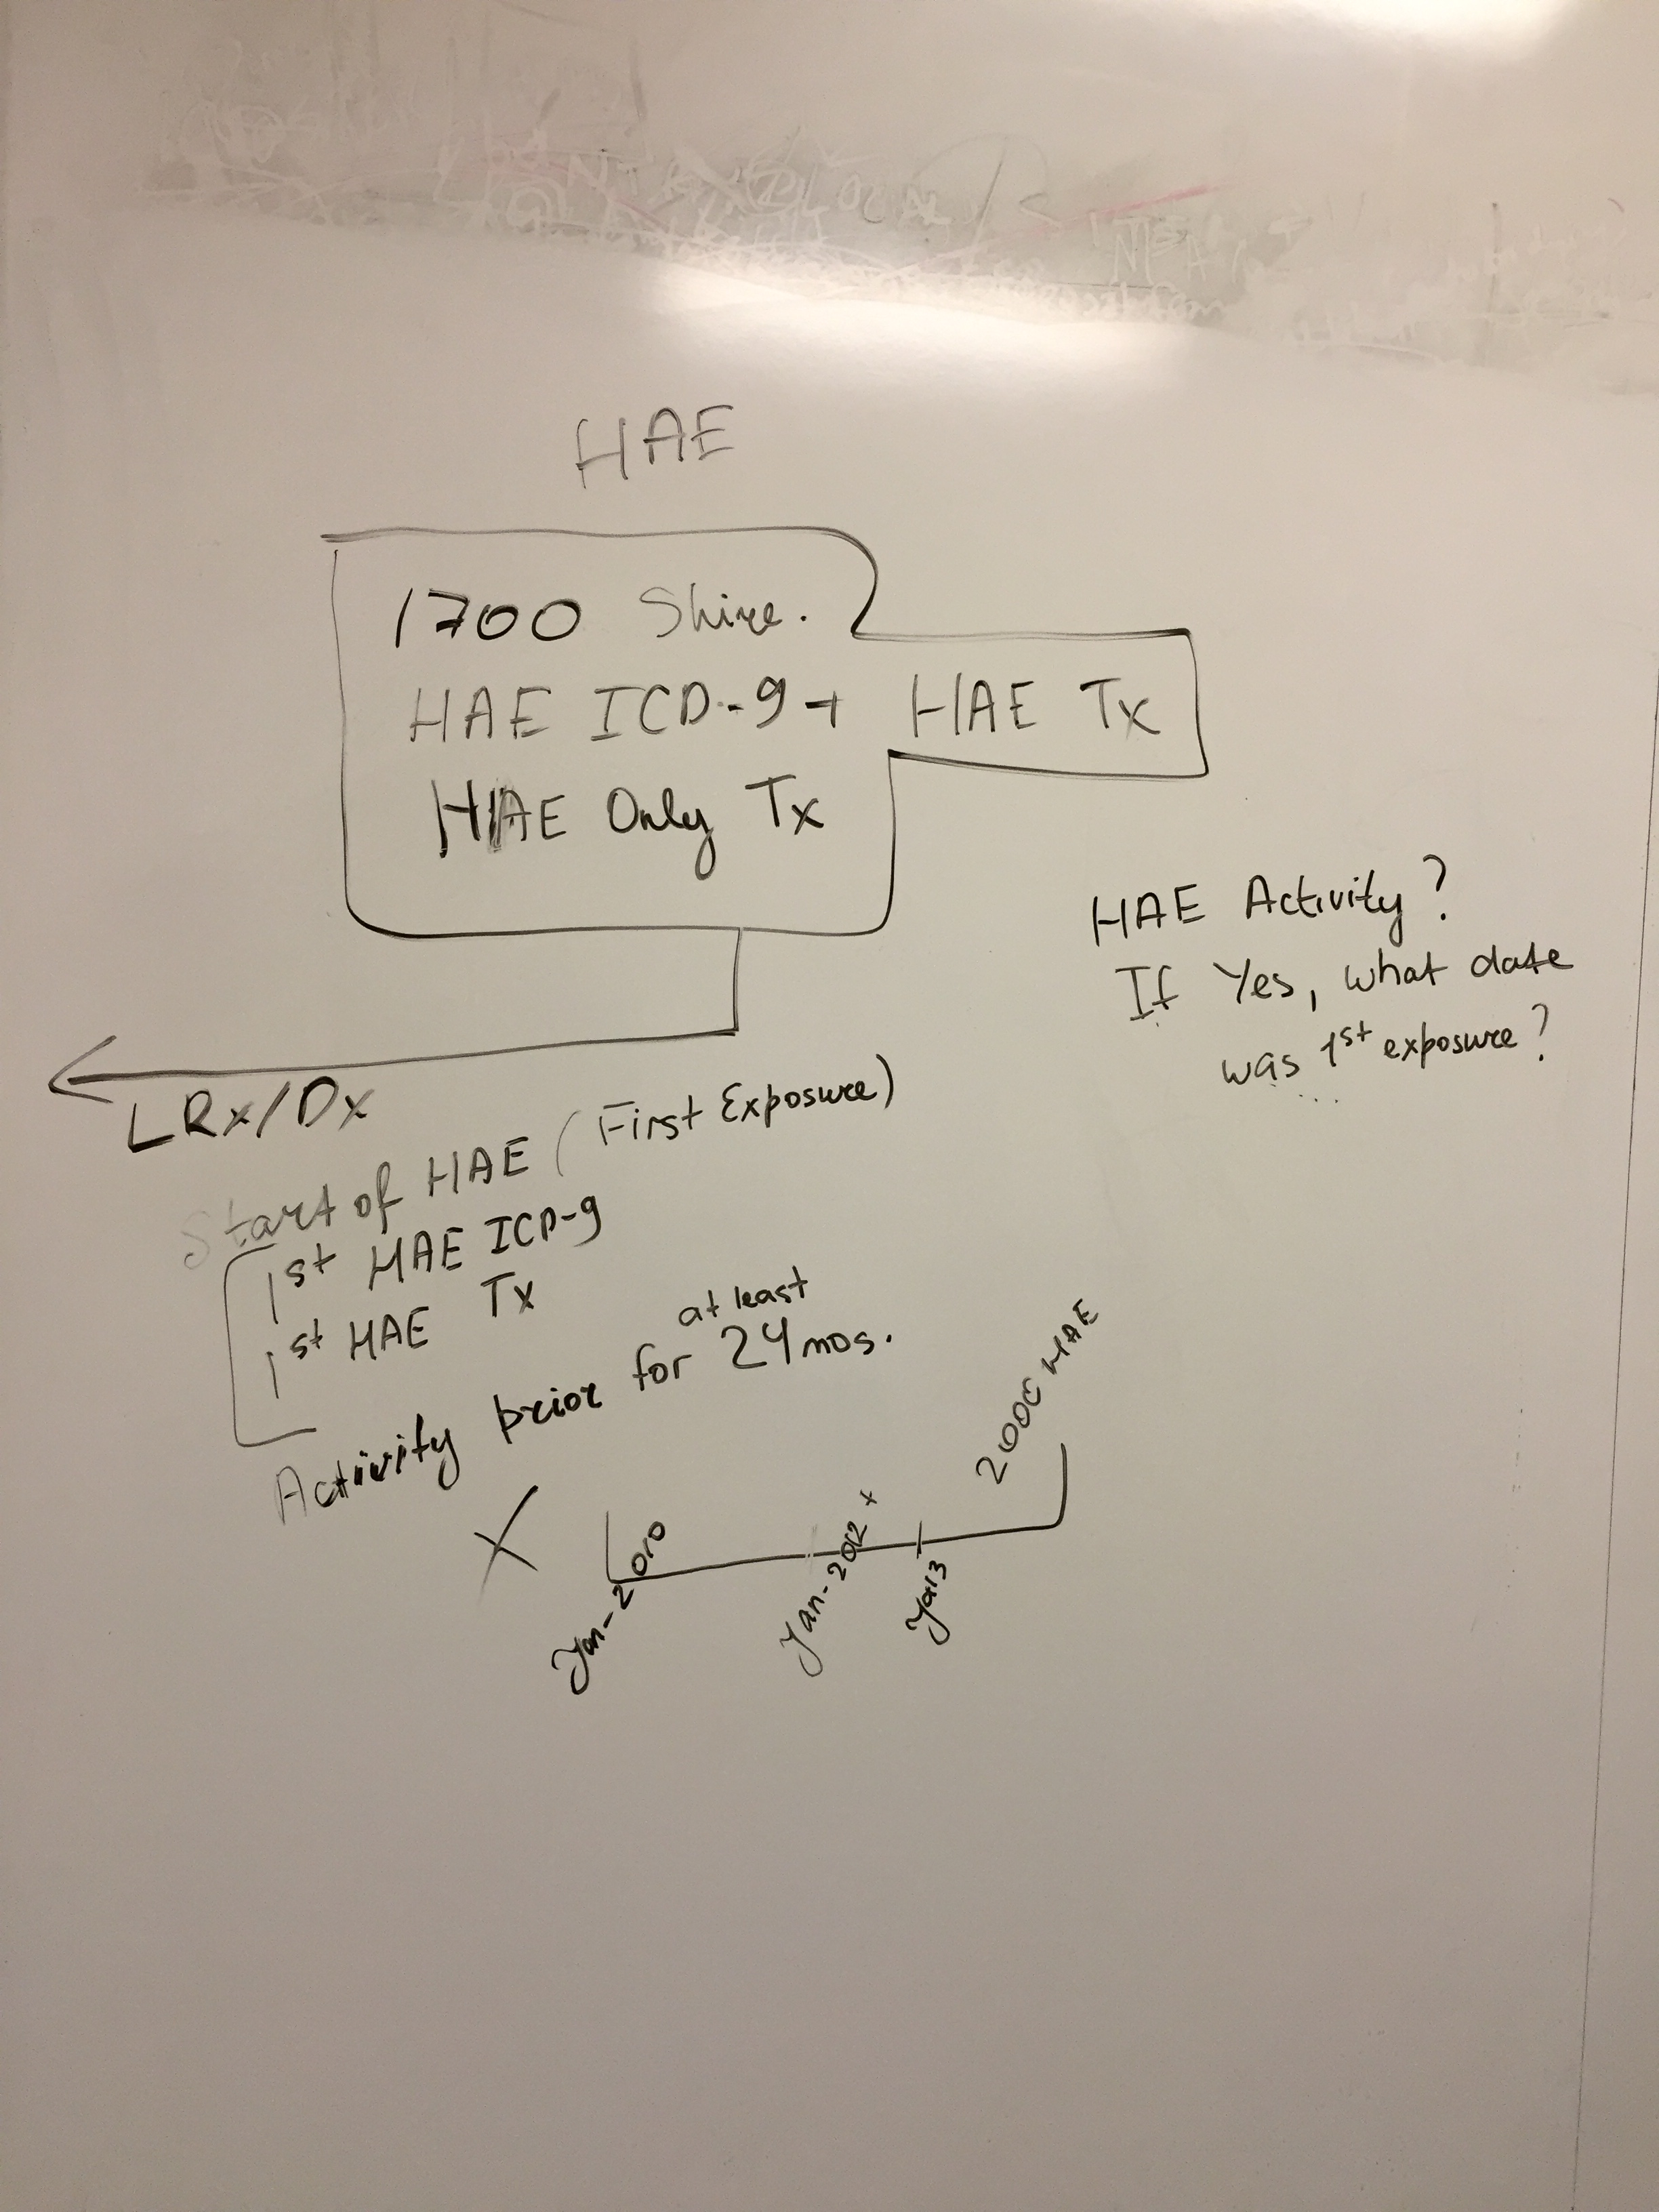 HAE
1700 Shire.
HAE ICD-9 + HAE Tx
HAE Only Tx
HAE Activity?
If Yes, what date
was 1st exposure?
LRx/Dx
Start of HAE (First Exposure)
1st HAE ICD-9
1st HAE Tx
at least
Activity prior for 24 mos.
2000 HAE
X
Jan-2010
Jan-2012 +